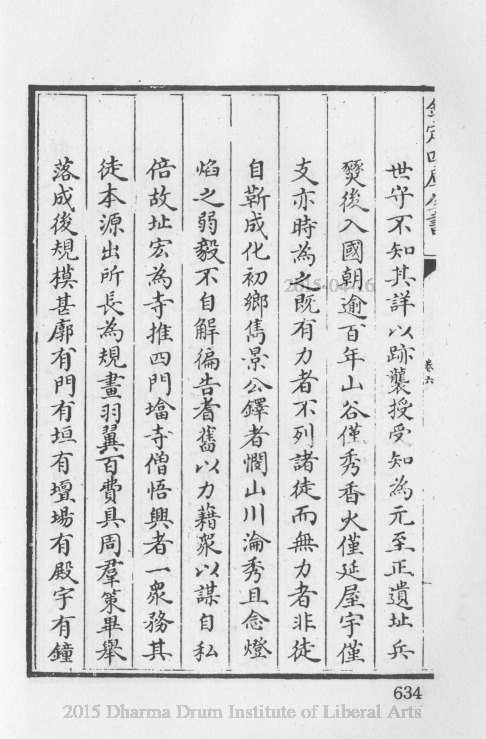 欽定四庫全書
卷六
世守不知其詳以跡襲授受知為元至正遺址兵
燹後入國朝逾百年山谷僅秀香火僅延屋宇僅
支亦時為之既有力者不列諸徒而無力者非徒
自靳成化初鄉雋景公鐸者憫山川淪秀且念燈
焰之弱毅不自解徧告耆舊以力藉衆以謀自私
倍故址宏為寺推四門墖寺僧悟興者一衆務其
徒本源出所長為規畫羽翼百費具周羣策畢舉
落成後規模甚廓有門有垣有壇場有殿宇有鐘
2015-04-16
634
2015 Dharma Drum Institute of Liberal Arts